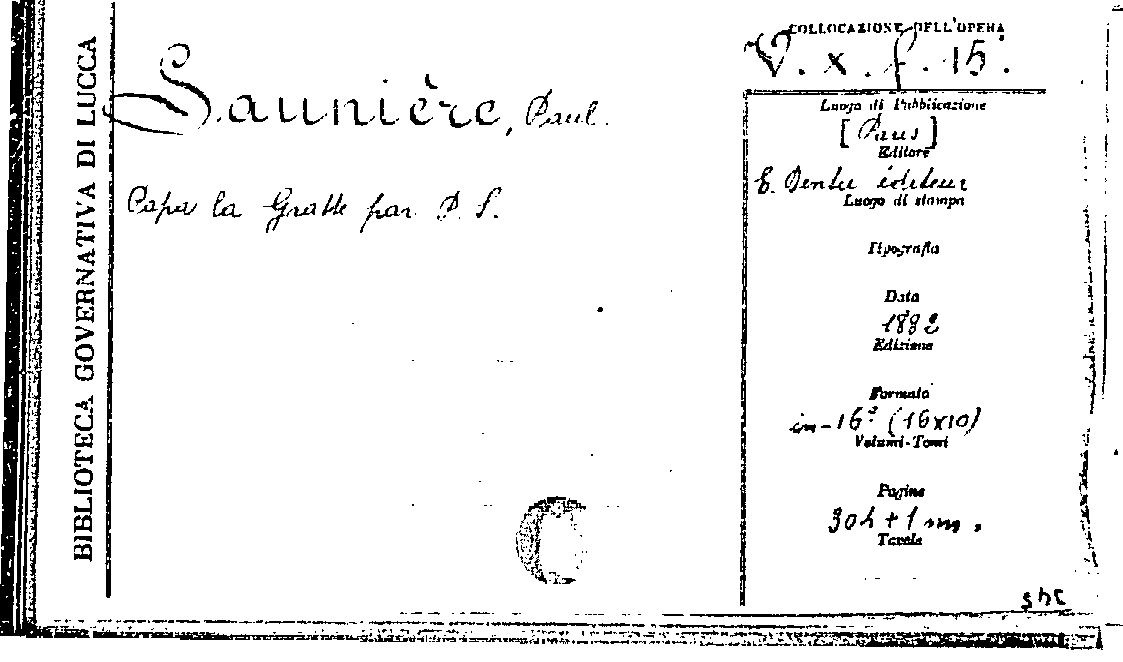 BIBLIOTECA GOVERNATIVA DI LUCCA
Saunière, Paul.
Papa la Gratte par P. S.
COLLOCAZIONE DELL'OPERA
V. x. f. 15.
Luogo di Pubblicazione
[Paris]
Editore
E. Dentu éditeur
Luogo di stampa
Tipografia
Data
1882
Edizione
Formato
in-16º (16x10)
Volumi-Tomi
Pagine
304 + 1 nn.
Tavole